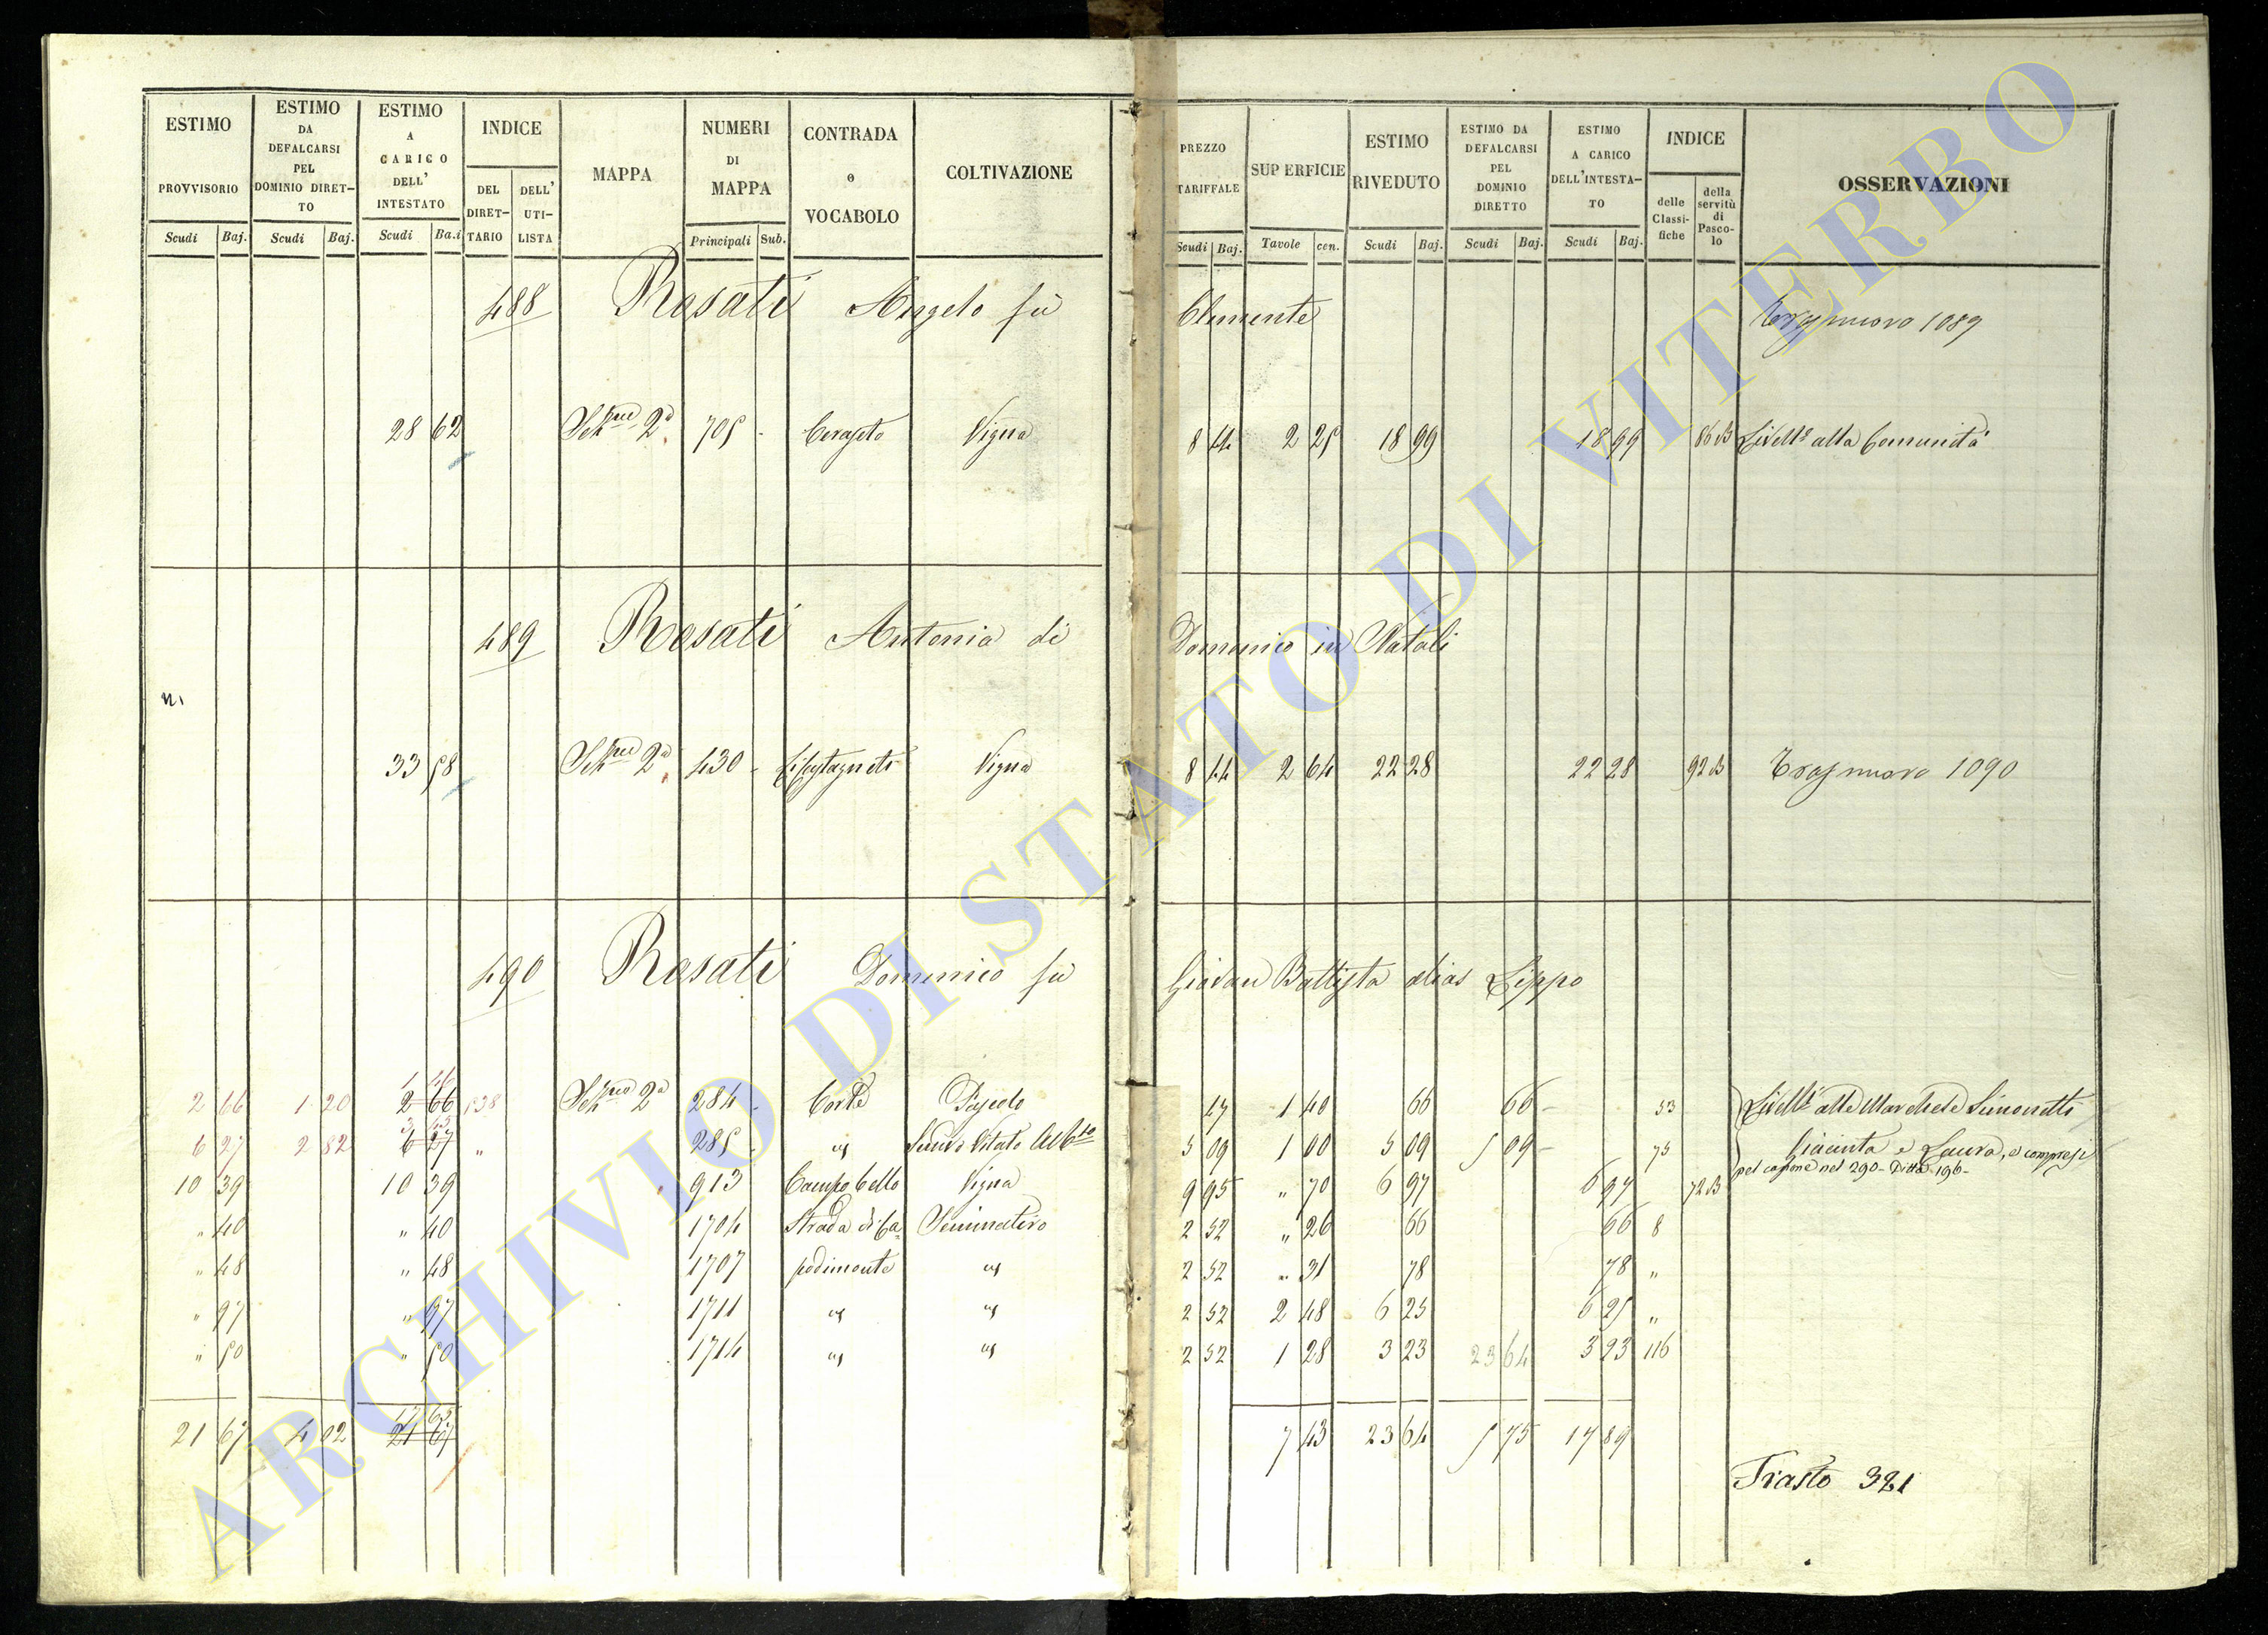 ESTIMO PROVVISORIO Scudi Baj.
ESTIMO DA DEFALCARSI PEL DOMINIO DIRETTO Scudi Baj.
ESTIMO A CARICO DELL' INTESTATO Scudi Ba.i
INDICE DEL DIRETTARIO DELL' UTILISTA
MAPPA
NUMERI DI MAPPA Principali Sub.
CONTRADA o VOCABOLO
COLTIVAZIONE
PREZZO TARIFFALE Scudi Baj.
SUPERFICIE Tavole cen.
ESTIMO RIVEDUTO Scudi Baj.
ESTIMO DA DEFALCARSI PEL DOMINIO DIRETTO Scudi Baj.
ESTIMO A CARICO DELL'INTESTATO Scudi Baj.
INDICE delle Classifiche della servitù di Pascolo
OSSERVAZIONI
488 Rosati Angelo fù Clemente 1089
28 62 2a 705 - Ceraseto Vigna 8 44 2 25 18 99 18 99 86 B Livello alla Comunità
489 Rosati Antonia di Domenico in Natali
33 58 2a 430 - Vigna 8 44 2 64 22 28 22 28 92 B 1090
490 Rosati Domenico fù Giovan Battista alias Lippo
2 66 1 20 2 66 538 2a 284 - Corte Pascolo 47 1 40 66 66 - 53 Livello alle Marchese Simonetti
6 27 2 82 6 27 " 285 - Vitato 5 09 1 00 5 09 5 09 - 75 Giacinta e Laura, e compresi
pel canone nel 290 - Ditta 196 -
10 39 10 39 913 Campo bello Vigna 9 95 " 70 6 97 6 97 72 B
" 40 " 40 1704 Strada di Ca Seminativo 2 52 " 26 66 66 8
" 48 " 48 1707 podimonte 2 52 " 31 78 78 "
" 97 " 97 1711 2 52 2 48 6 25 6 25 "
" 50 " 50 1714 2 52 1 28 3 23 23 64 3 23 116
21 67 4 02 21 67 7 43 23 64 5 75 17 89
Trasto 321
ARCHIVIO DI STATO DI VITERBO